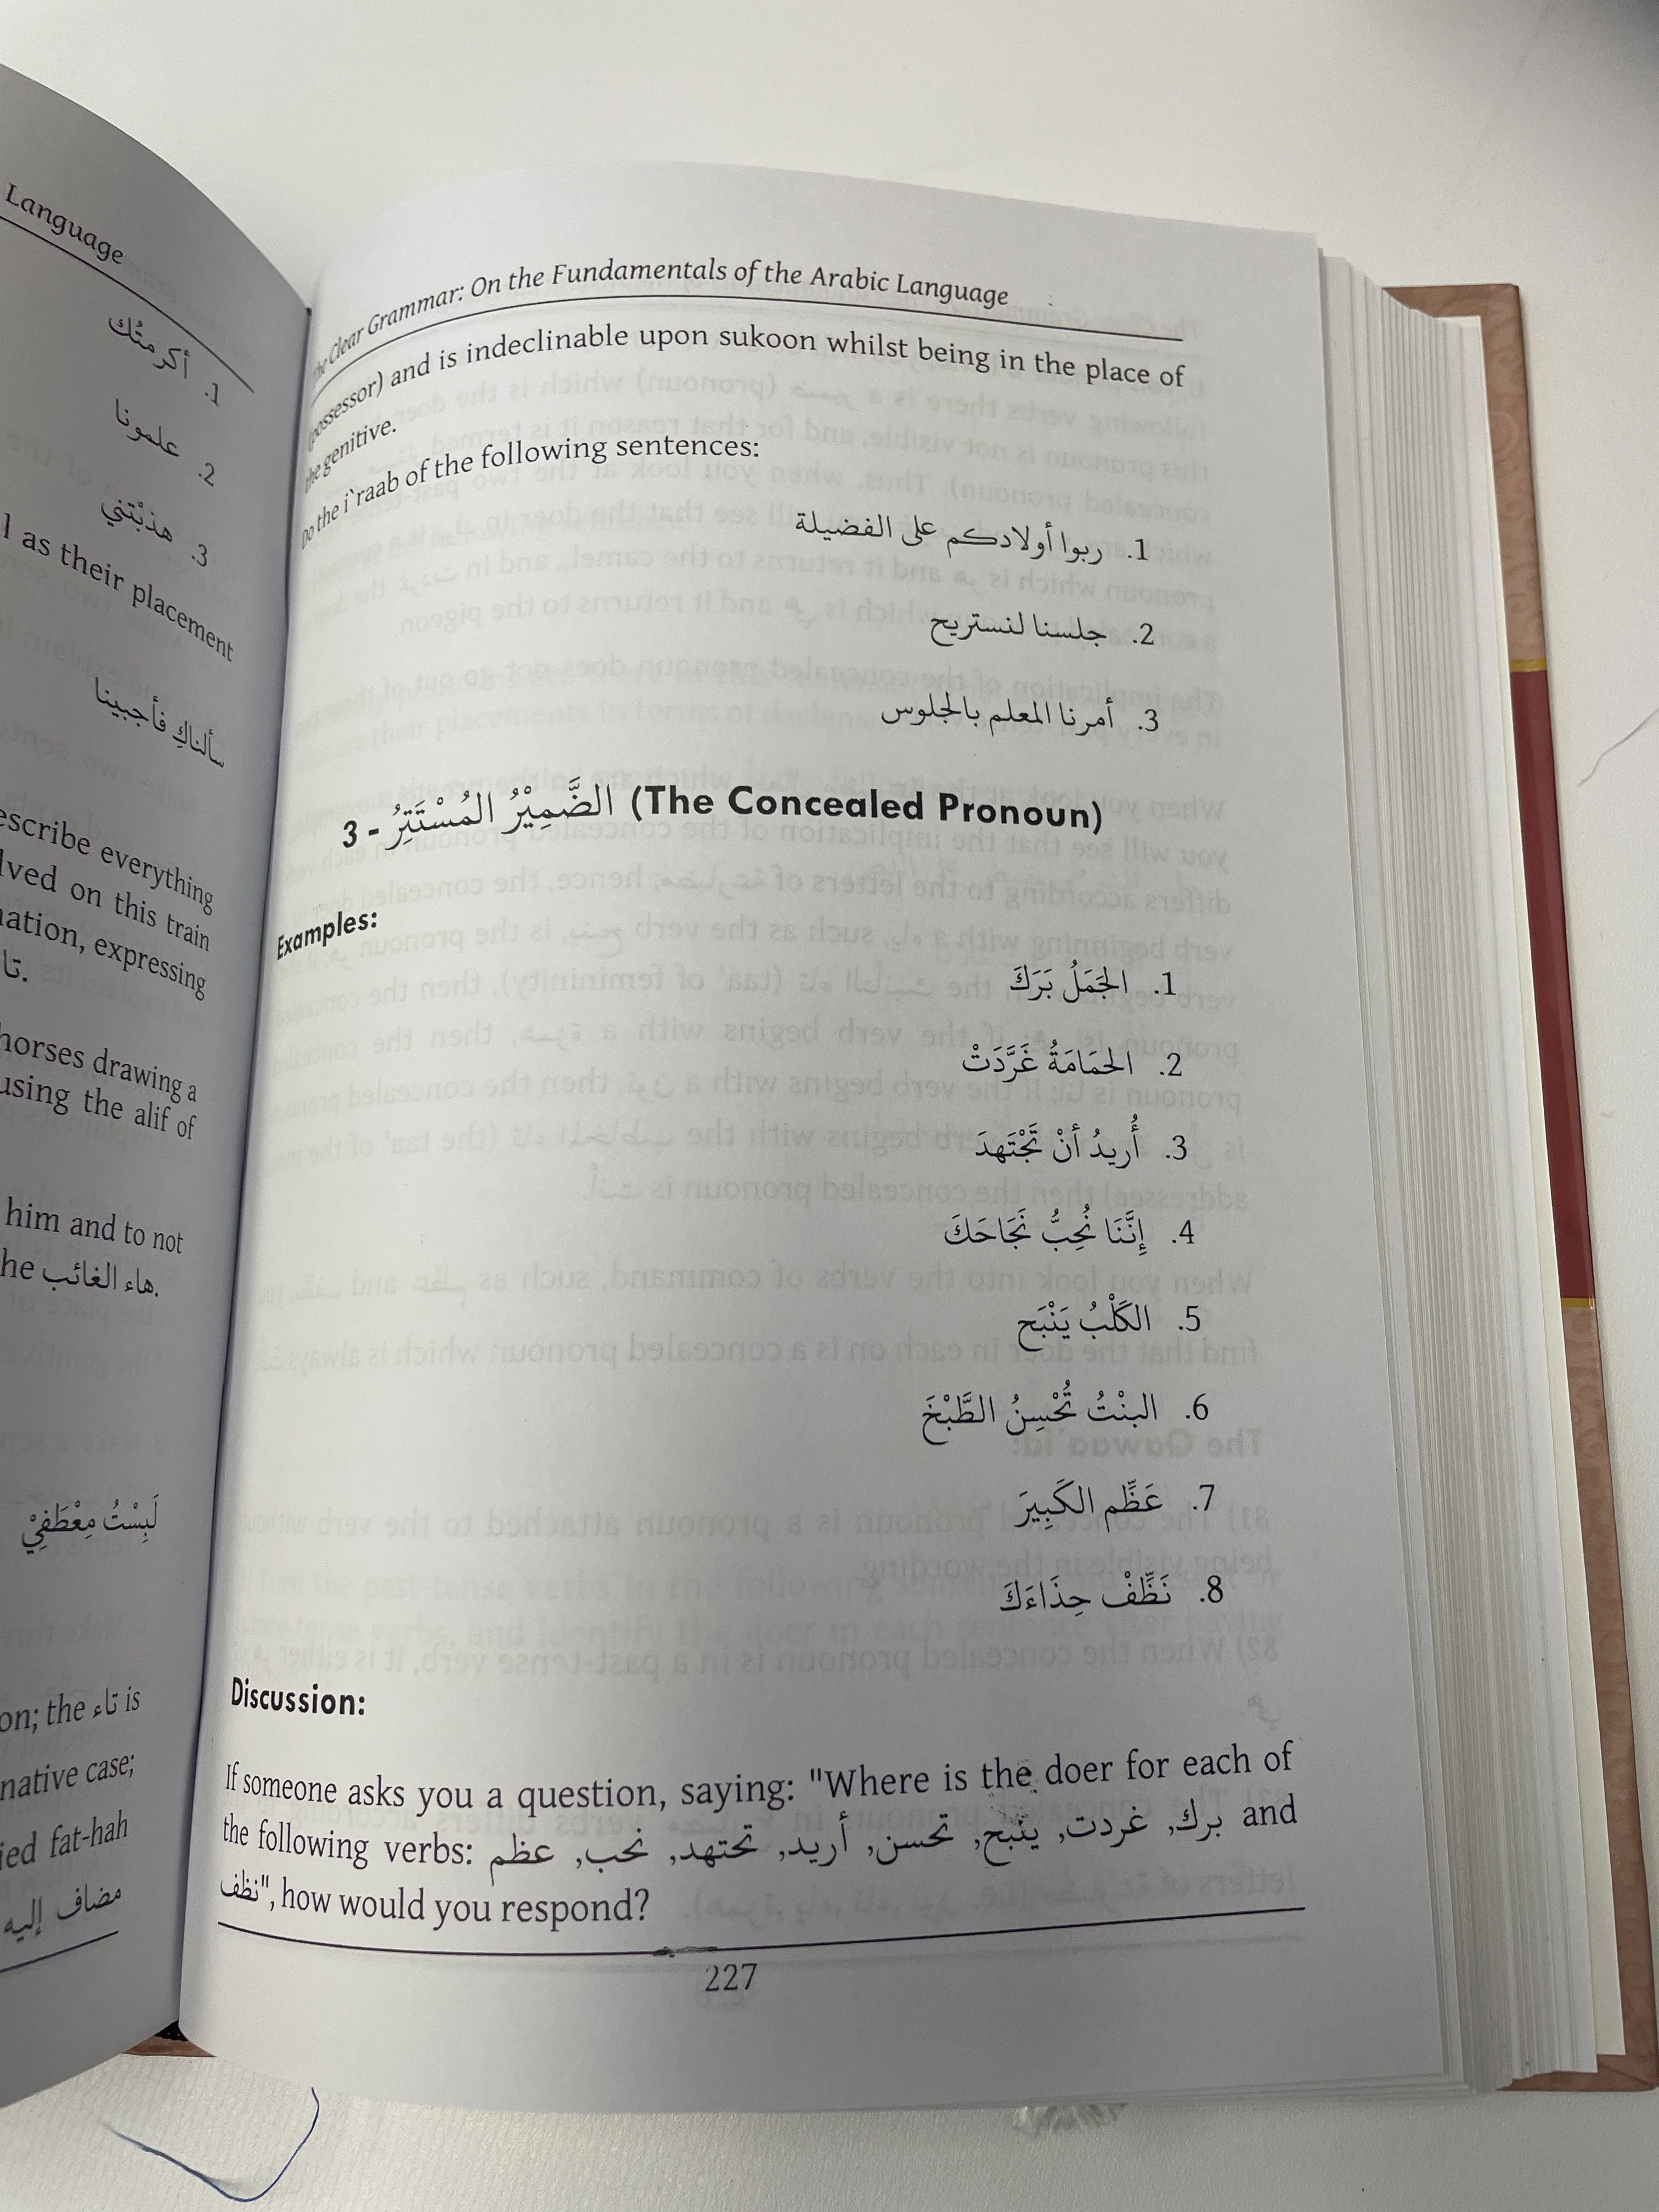 Language
1. أكرمتُك
2. علمونا
3. هذبْتني
l as their placement
سألناكِ فأجبينا
escribe everything
lved on this train
nation, expressing
تا.
horses drawing a
using the alif of
him and to not
he هاء الغائب.
لَبِسْتُ مِعْطَفِيْ
on; the تاء is
native case;
ied fat-hah
مضاف إليه
The Clear Grammar: On the Fundamentals of the Arabic Language
(possessor) and is indeclinable upon sukoon whilst being in the place of
the genitive.
Do the i`raab of the following sentences:
1. ربوا أولادكم على الفضيلة
2. جلسنا لنستريح
3. أمرنا المعلم بالجلوس
3 - الضَّمِيْرُ المُسْتَتِرُ (The Concealed Pronoun)
Examples:
1. الجَمَلُ بَرَكَ
2. الحَمَامَةُ غَرَّدَتْ
3. أُرِيدُ أنْ تَجْتَهدَ
4. إِنَّنَا نُحِبُّ نَجَاحَكَ
5. الكَلْبُ يَنْبَح
6. البنْتُ تُحْسِنُ الطَّبْخَ
7. عَظِّم الكَبِيرَ
8. نَظِّفْ حِذَاءَكَ
Discussion:
If someone asks you a question, saying: "Where is the doer for each of
the following verbs: برك, غردت, ينبح, تحسن, أريد, تجتهد, نحب, عظم and
نظف", how would you respond?
227